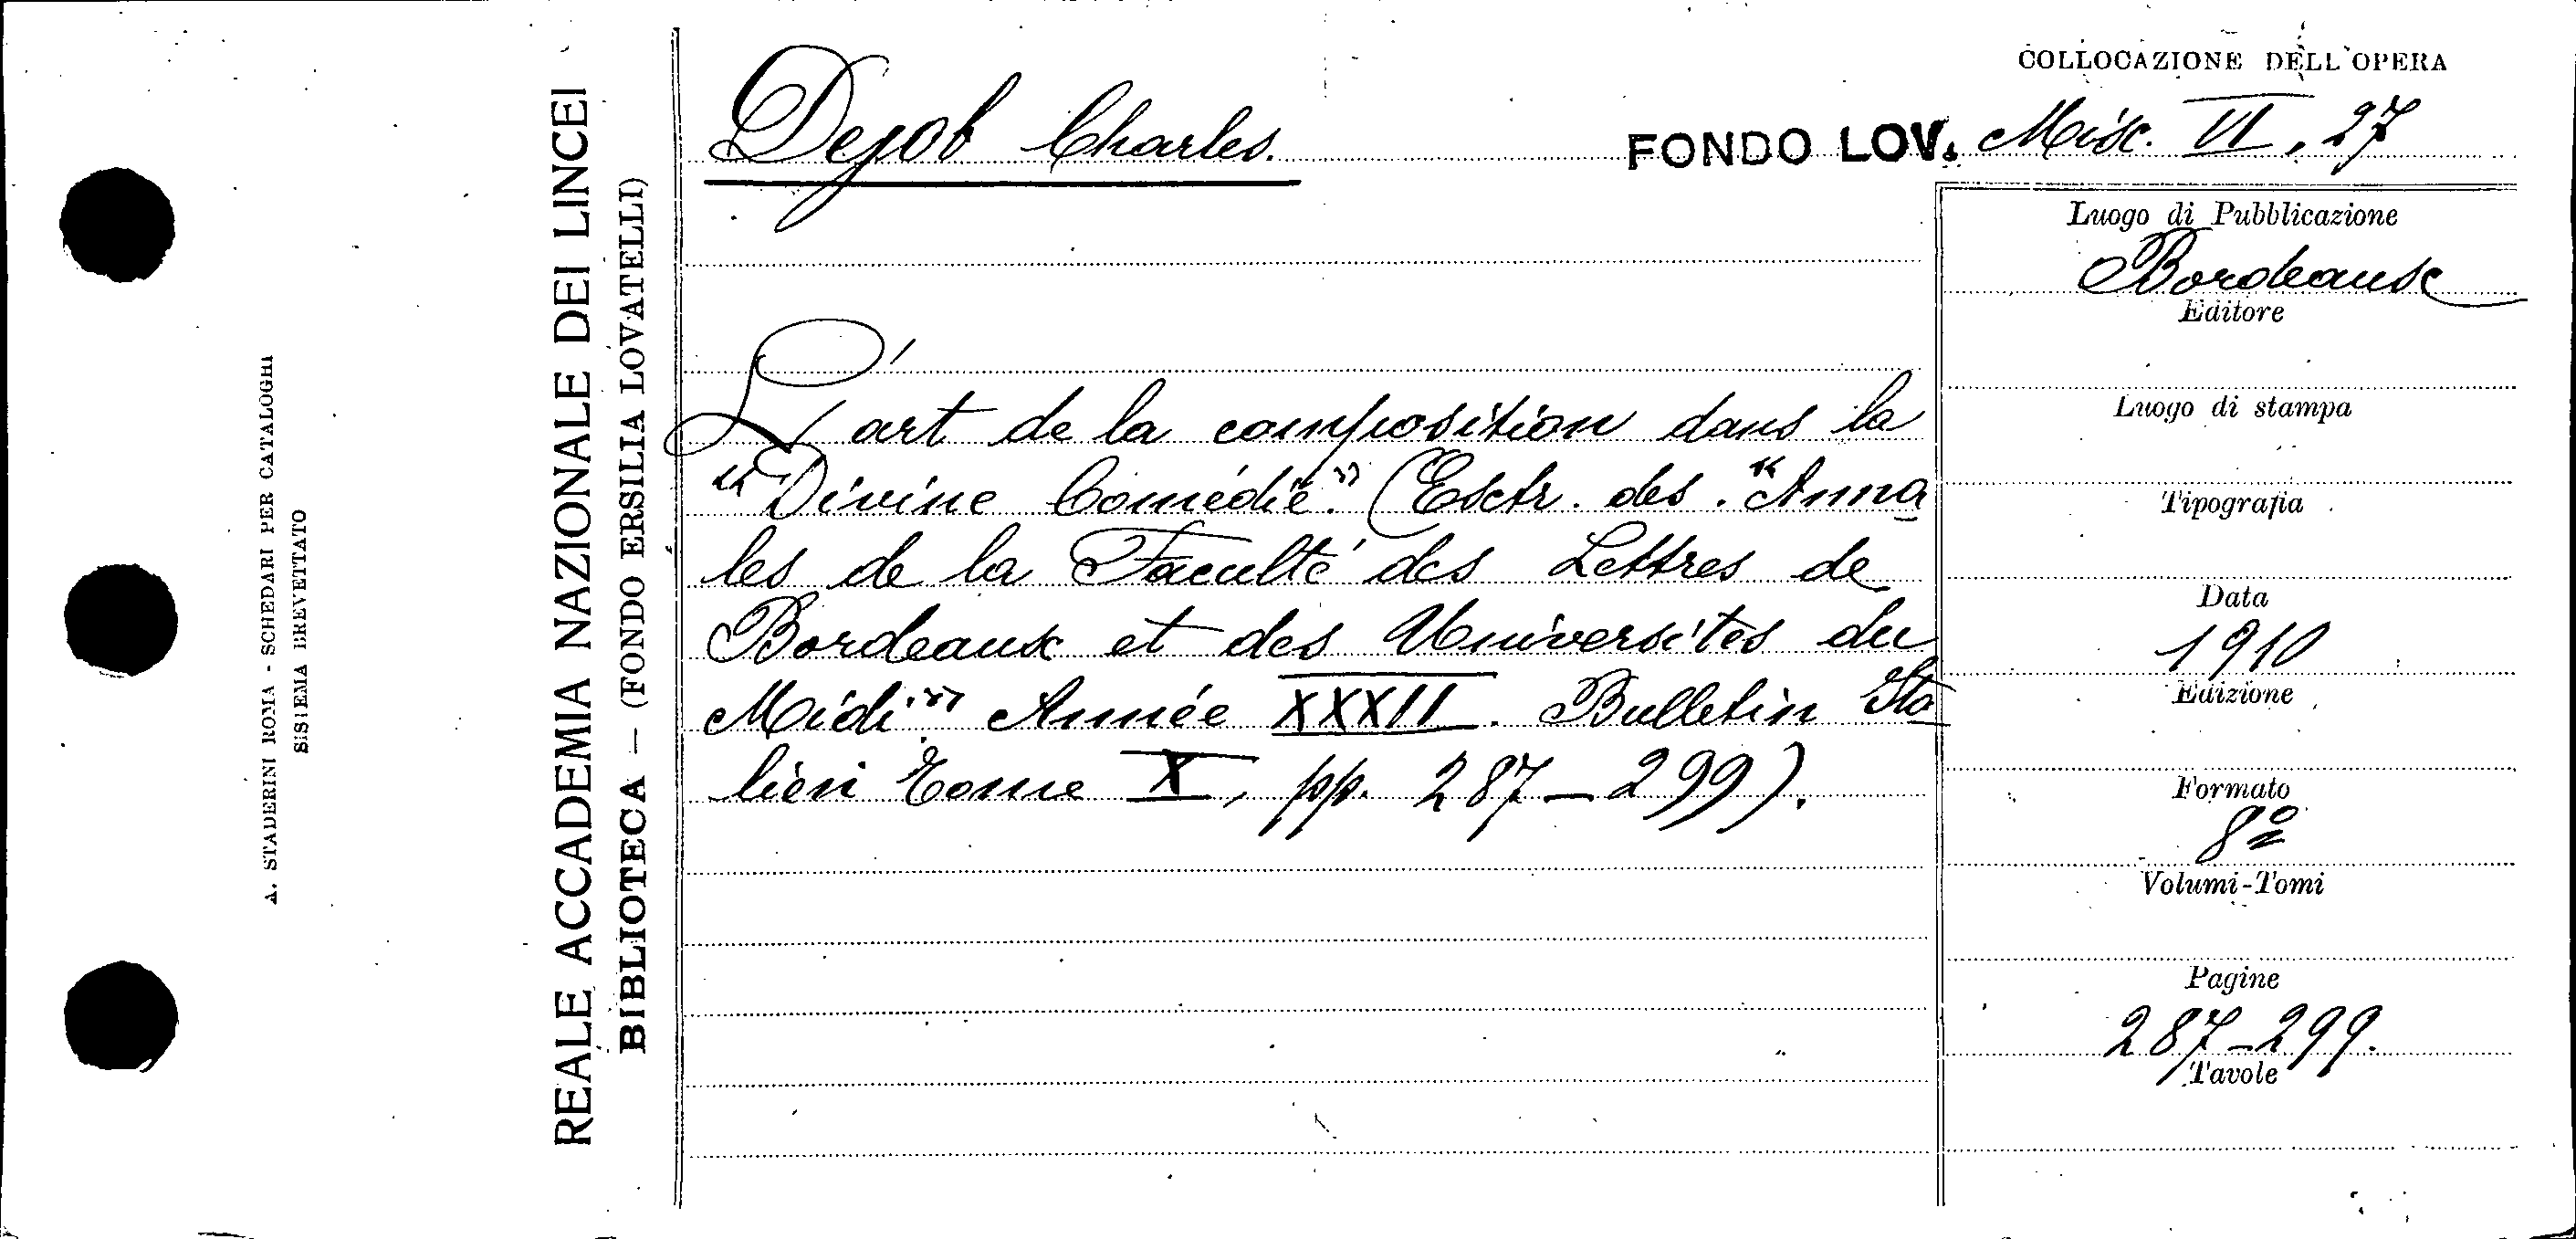 A. STADERINI ROMA - SCHEDARI PER CATALOGHI
SISTEMA BREVETTATO
REALE ACCADEMIA NAZIONALE DEI LINCEI
BIBLIOTECA — (FONDO ERSILIA LOVATELLI)
COLLOCAZIONE DELL'OPERA
Dejob Charles.
FONDO LOV. Misc. VI, 27
L'art de la composition dans la
"Divine Comédie." (Extr. des "Anna
les de la Faculté des Lettres de
Bordeaux et des Universités du
Midi." Année XXXII. Bulletin Ita
lien Tome X, pp. 287-299).
Luogo di Pubblicazione
Bordeaux
Editore
Luogo di stampa
Tipografia
Data
1910
Edizione
Formato
8º
Volumi-Tomi
Pagine
287-299.
Tavole